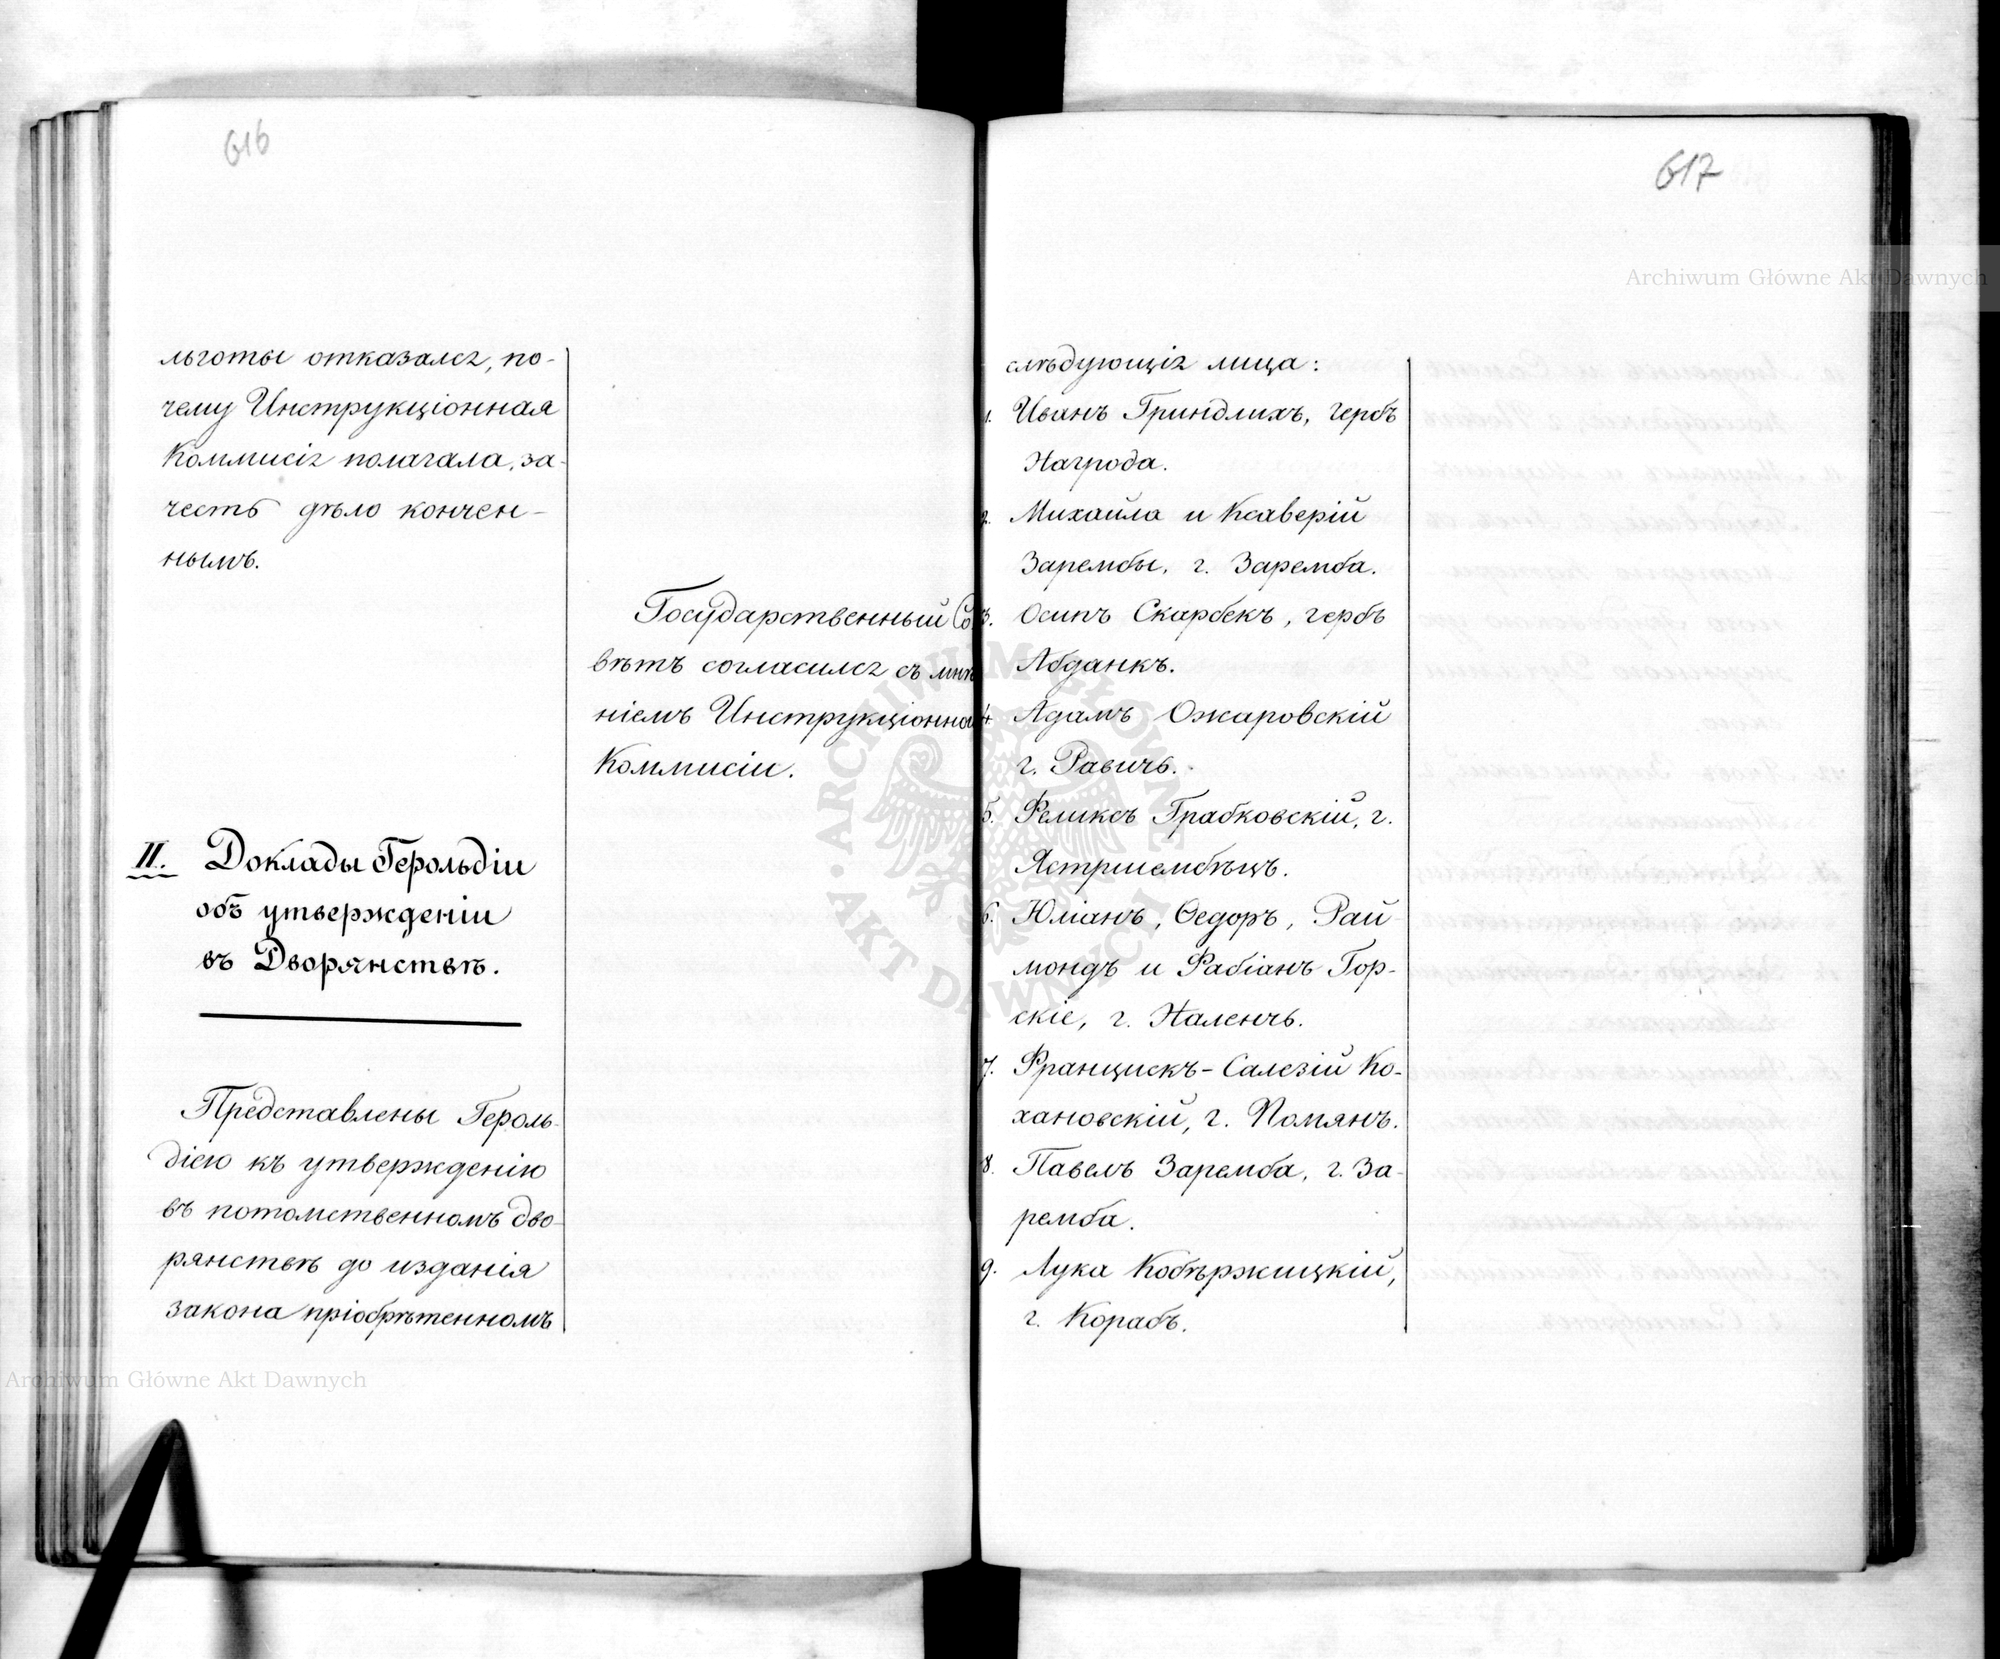 616
льготы отказался, по-
чему Инструкціонная
Коммисія полагала, за-
честь дѣло кончен-
нымъ.
Государственный Со
вѣтъ согласился съ мнѣ
ніемъ Инструкціонной
Коммисіи.
II. Доклады Герольдіи
объ утвержденіи
въ Дворянствѣ.
Представлены Героль-
діею къ утвержденію
въ потомственномъ дво-
рянствѣ до изданія
закона пріобрѣтенномъ
617
слѣдующія лица:
1. Иванъ Гриндлихъ, гербъ
Нагрода.
2. Михаила и Ксаверій
Зарембы, г. Заремба.
3. Осипъ Скарбекъ, гербъ
Абданкъ.
4. Адамъ Ожаровскій
г. Равичъ.
5. Феликсъ Грабковскій, г.
Ястршембѣцъ.
6. Юліанъ, Ѳедоръ, Рай-
мондъ и Фабіанъ Гор-
скіе, г. Наленчъ.
7. Францискъ-Салезій Ко-
хановскій, г. Помянъ.
8. Павелъ Заремба, г. За-
ремба.
9. Лука Кобѣржицкій,
г. Корабъ.
Archiwum Główne Akt Dawnych
Archiwum Główne Akt Dawnych
ARCHIWUM GŁÓWNE AKT DAWNYCH